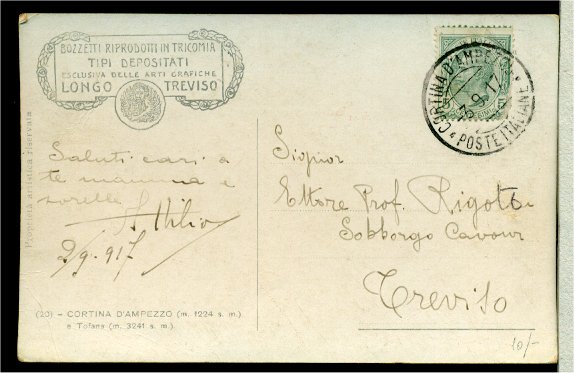 BOZZETTI RIPRODOTTI IN TRICOMIA
TIPI DEPOSITATI
ESCLUSIVA DELLE ARTI GRAFICHE
LONGO TREVISO
Proprietà artistica riservata
Saluti cari a
te mamma e
sorelle
Attilio
2/9.917
(20) – CORTINA D'AMPEZZO (m. 1224 s. m.)
e Tofana (m. 3241 s. m.)
CORTINA D'AMPEZZO
9.17
POSTE ITALIANE
Signor
Ettore Prof. Rigotti
Sobborgo Cavour
Treviso
10/-